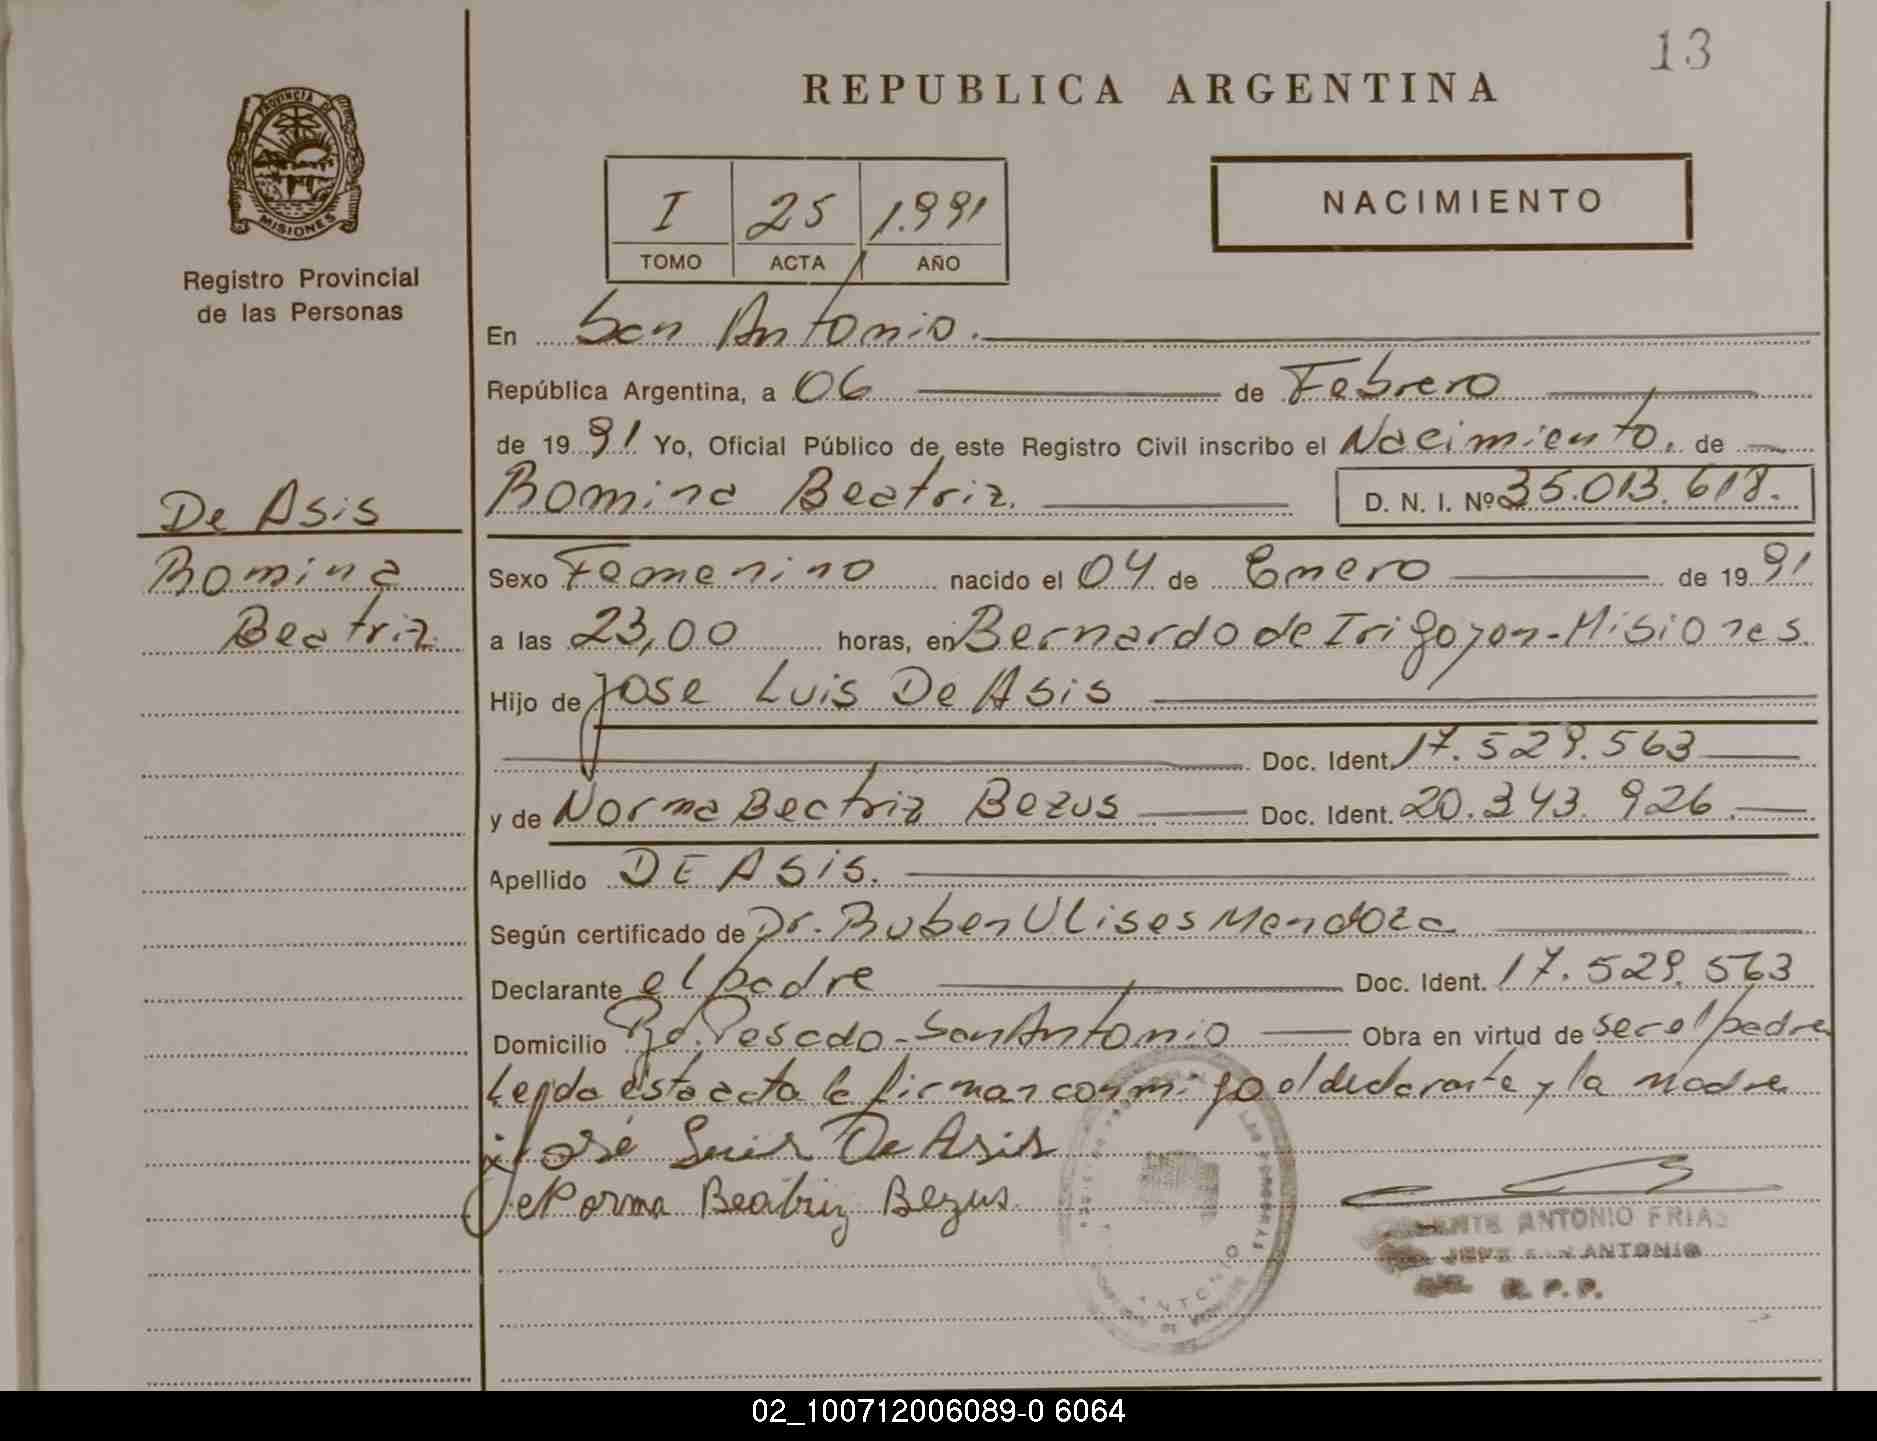 13
REPUBLICA ARGENTINA
PROVINCIA DE
MISIONES
Registro Provincial
de las Personas
I 25 1.991
TOMO ACTA AÑO
NACIMIENTO
En San Antonio.
República Argentina, a 06 de Febrero
de 1991 Yo, Oficial Público de este Registro Civil inscribo el Nacimiento, de
De Asis
Romina Beatriz. D. N. I. Nº 35.013.618.
Romina
Beatriz
Sexo Femenino nacido el 04 de Enero de 1991
a las 23,00 horas, en Bernardo de Irigoyen-Misiones.
Hijo de Jose Luis De Asis
Doc. Ident. 17.529.563
y de Norma Beatriz Bezus Doc. Ident. 20.343.926
Apellido DE ASiS.
Según certificado de Dr. Ruben Ulises Mendoza
Declarante el padre Doc. Ident. 17.529.563
Domicilio Pesado-San Antonio Obra en virtud de ser el padre
Leida esta acta la firman conmigo el declarante y la madre
José Luis De Asis
Norma Beatriz Bezus.
ANTONIO FRIAS
JEFE SAN ANTONIO
R. P. P.
02_100712006089-0 6064